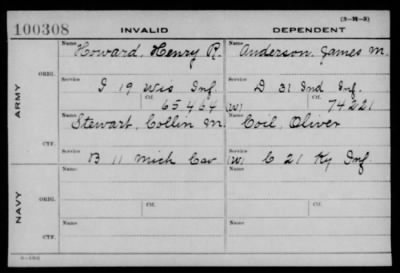 (3-M-3)
100308 INVALID DEPENDENT
Name Name
Howard, Henry R. Anderson, James M.
ARMY
ORIG.
Service Service
I 19 Wis Inf. D 31 Ind Inf.
Ctf. Ctf.
65464 (W) 74221
Name Name
Stewart, Collin M. Coil, Oliver
CTF.
Service Service
B 11 Mich Cav (W) C 21 Ky Inf.
NAVY
Name Name
ORIG.
Ctf. Ctf.
Name Name
CTF.